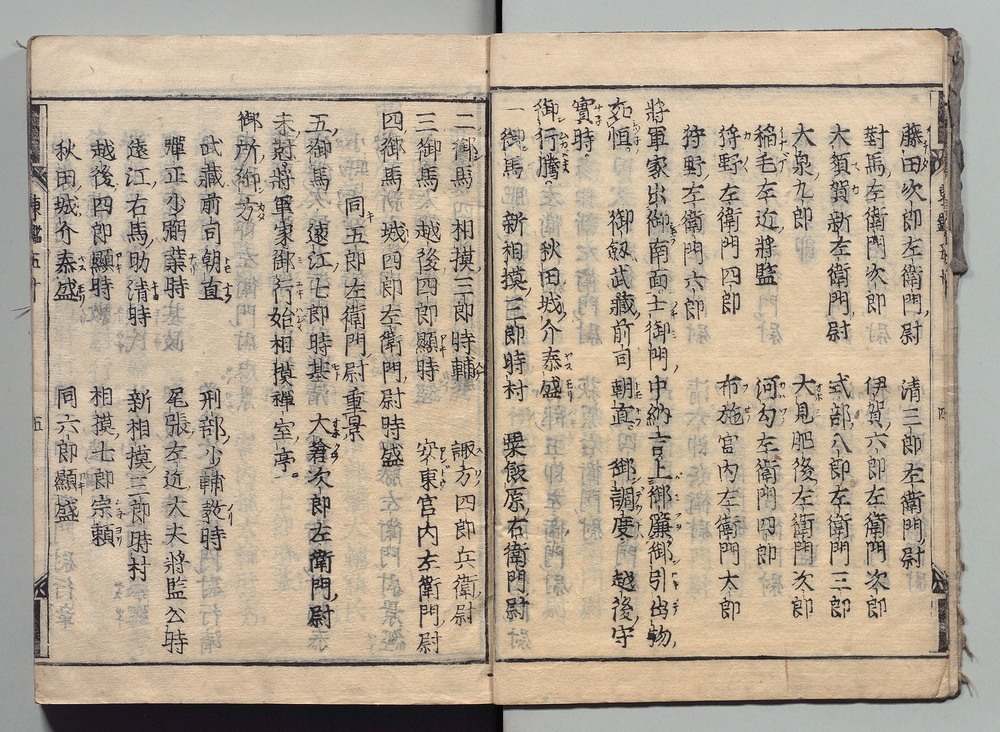 藤田次郎左衛門尉　清三郎左衛門尉
對馬左衛門次郎　伊賀六郎左衛門次郎
大賀賀新左衛門尉　式部八郎左衛門三郎
大泉九郎　大見肥後左衛門次郎
稲毛左近將監　河勾左衛門四郎
狩野左衛門四郎　布施宮内左衛門太郎
狩野左衛門六郎
將軍家出御南面土御門中納言上御簾御引出物
如恒　御劔武藏前司朝直　御調度越後守
實時
御行騰秋田城介泰盛
一御馬　新相摸三郎時村　粟飯原右衛門尉
二御馬　相摸三郎時輔　諏方四郎兵衛尉
三御馬　越後四郎顯時　安東宮内左衛門尉
四御馬　城四郎左衛門尉時盛
同五郎左衛門尉重景
五御馬　遠江七郎時基　大次郎左衛門尉
未尅將軍家御行始相摸禪室亭
御所御方
武藏前司朝直　刑部少輔教時
彈正少弼業時　尾張左近大夫將監公時
遠江右馬助清時　新相摸三郎時村
越後四郎顯時　相摸七郎宗頼
秋田城介泰盛　同六郎顯盛
東鑑五十
五